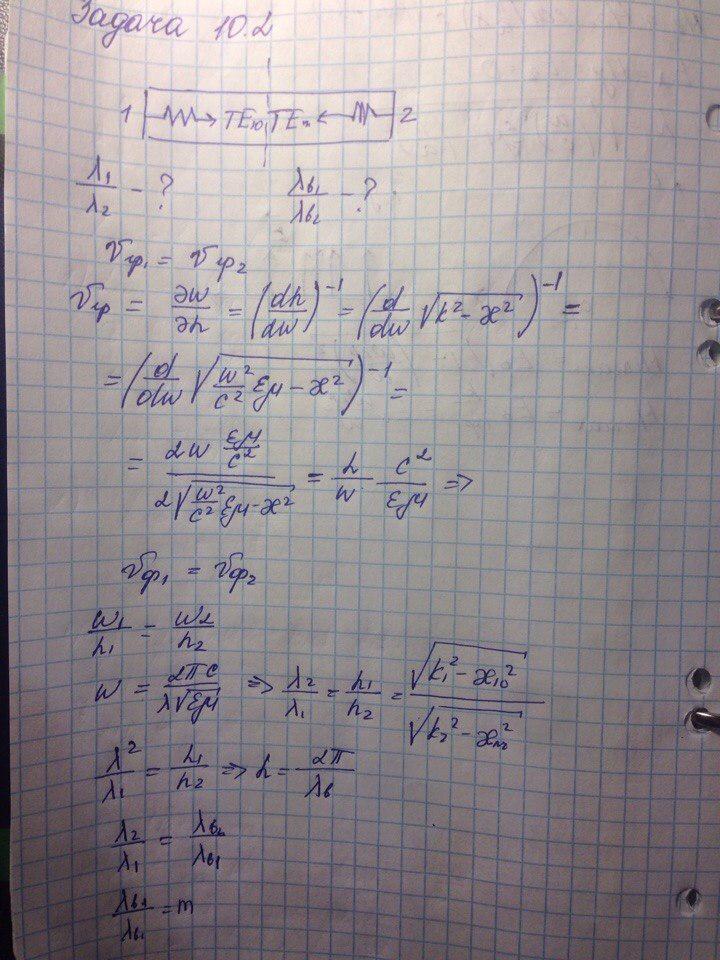 Задача 10.2
1 TE₁₀ TE 2
λ₁/λ₂ - ? λв₁/λв₂ - ?
Vгр₁ = Vгр₂
Vгр = ∂w/∂h = (dh/dw)⁻¹ = (d/dw √(k² - æ²))⁻¹ =
= (d/dw √(w²/c² εμ - æ²))⁻¹ =
= 2w εμ/c² / 2√(w²/c² εμ - æ²) = h/w c²/εμ =>
Vф₁ = Vф₂
w₁/h₁ = w₂/h₂
w = 2πc/λ√εμ => λ₂/λ₁ = h₁/h₂ = √(k₁² - æ₁₀²) / √(k₂² - æ²)
λ²/λ₁ = h₁/h₂ => h = 2π/λв
λ₂/λ₁ = λв₂/λв₁
λв₂/λв₁ = m